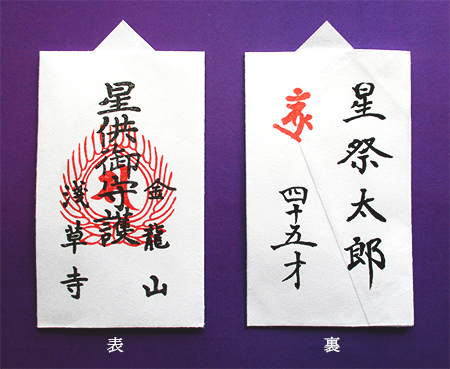 星供御守護
金龍山
浅草寺
表
星祭太郎
四十五才
亥
裏